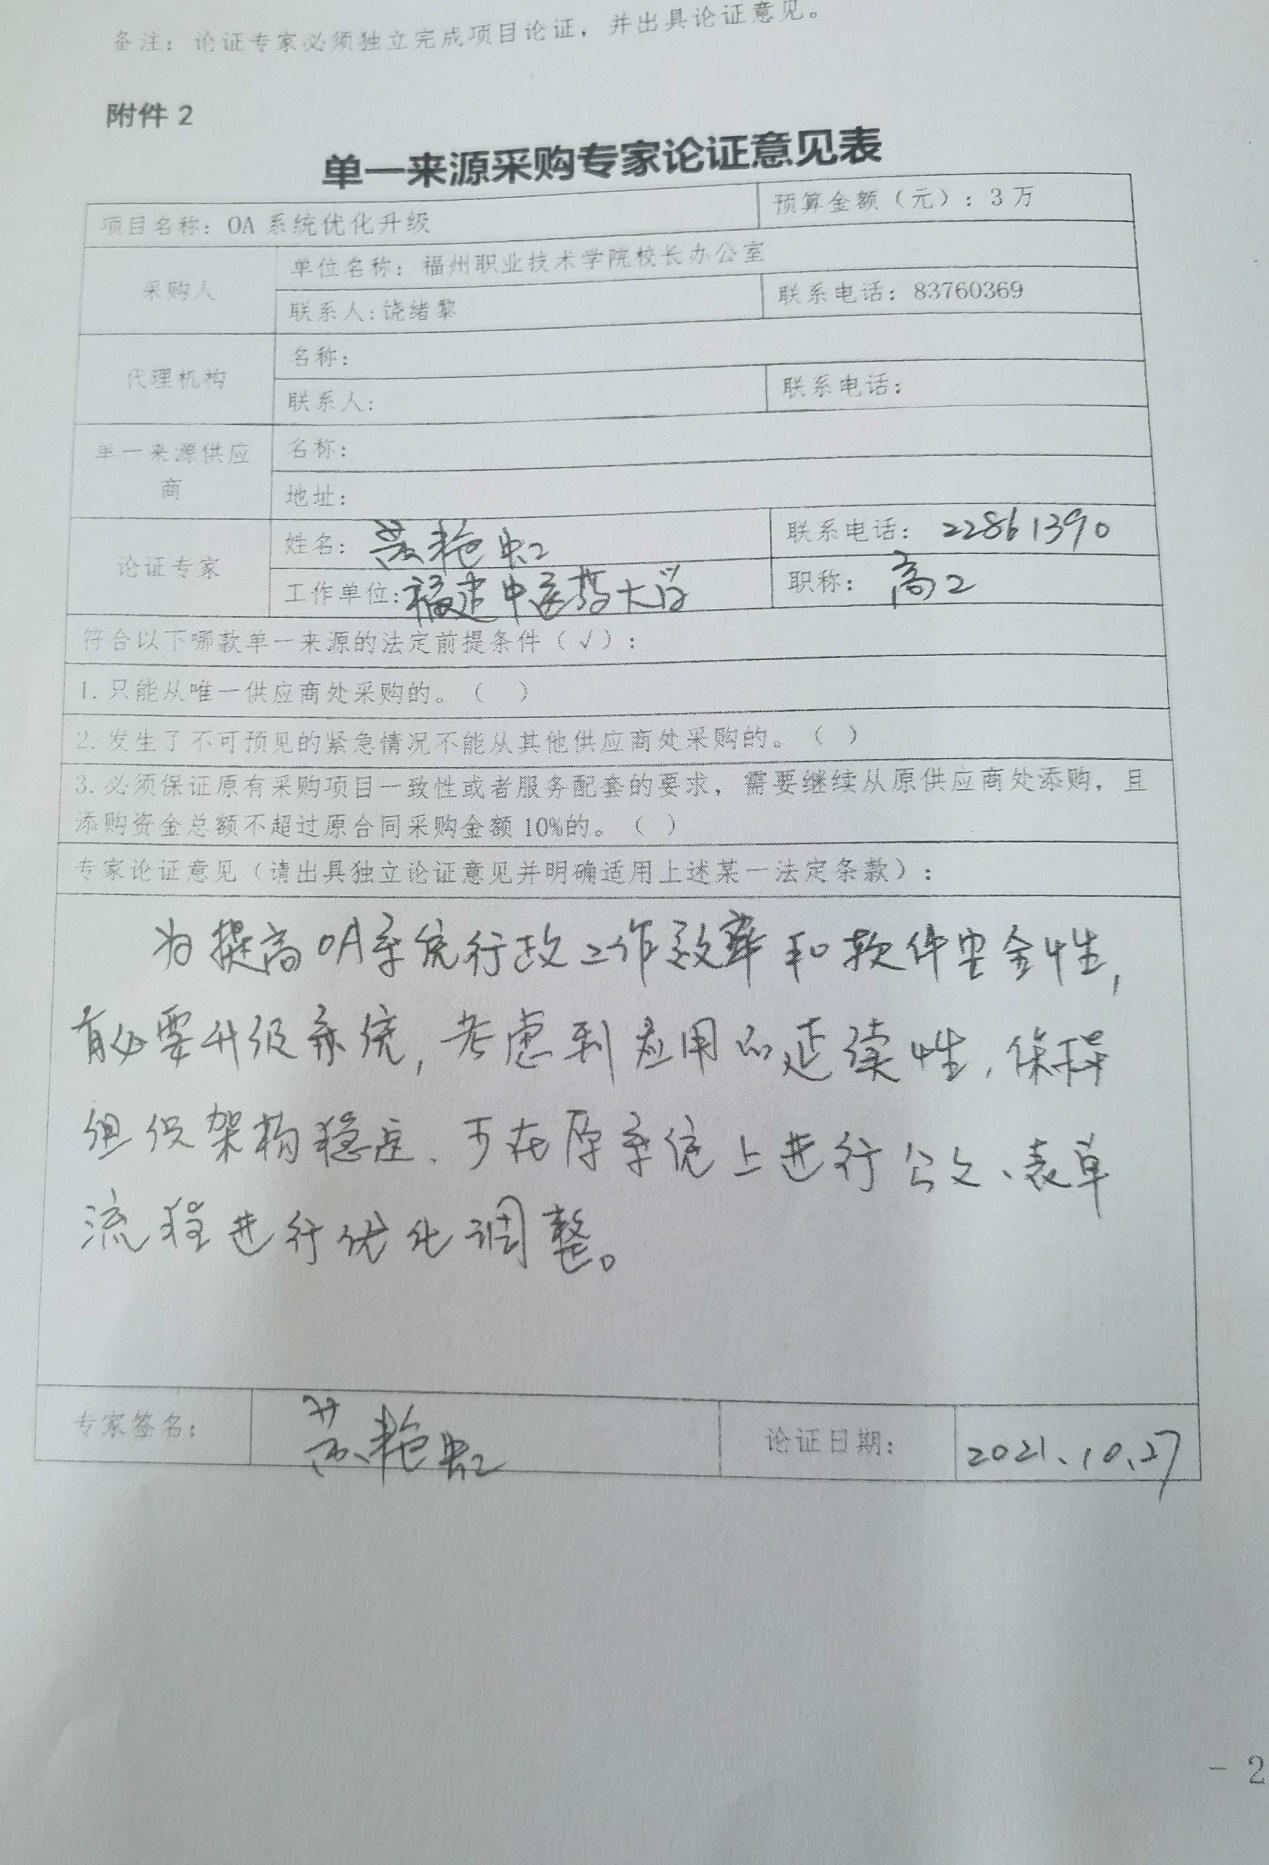 备注：论证专家必须独立完成项目论证，并出具论证意见。
附件 2
单一来源采购专家论证意见表
项目名称：OA 系统优化升级
预算金额（元）：3 万
采购人
单位名称：福州职业技术学院校长办公室
联系人：饶绪黎
联系电话：83760369
代理机构
名称：
联系人：
联系电话：
单一来源供应商
名称：
地址：
论证专家
姓名：苏艳虹
联系电话：22861390
工作单位：福建中医药大学
职称：高工
符合以下哪款单一来源的法定前提条件（√）：
1.只能从唯一供应商处采购的。（ ）
2.发生了不可预见的紧急情况不能从其他供应商处采购的。（ ）
3.必须保证原有采购项目一致性或者服务配套的要求，需要继续从原供应商处添购，且
添购资金总额不超过原合同采购金额 10%的。（ ）
专家论证意见（请出具独立论证意见并明确适用上述某一法定条款）：
为提高OA系统行政工作效率和软件安全性，
有必要升级系统，考虑到应用的延续性，保障
组织架构稳定、可在原系统上进行公文、表单
流程进行优化调整。
专家签名：
苏艳虹
论证日期：
2021.10.27
- 2